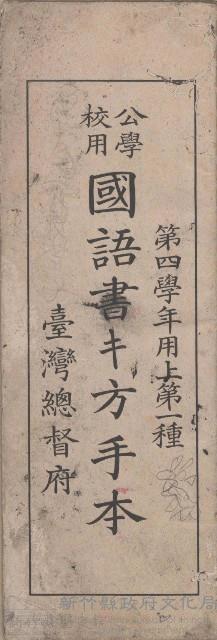 第四學年用上第一種
公學
校用
國語書キ方手本
臺灣總督府
新竹縣政府文化局